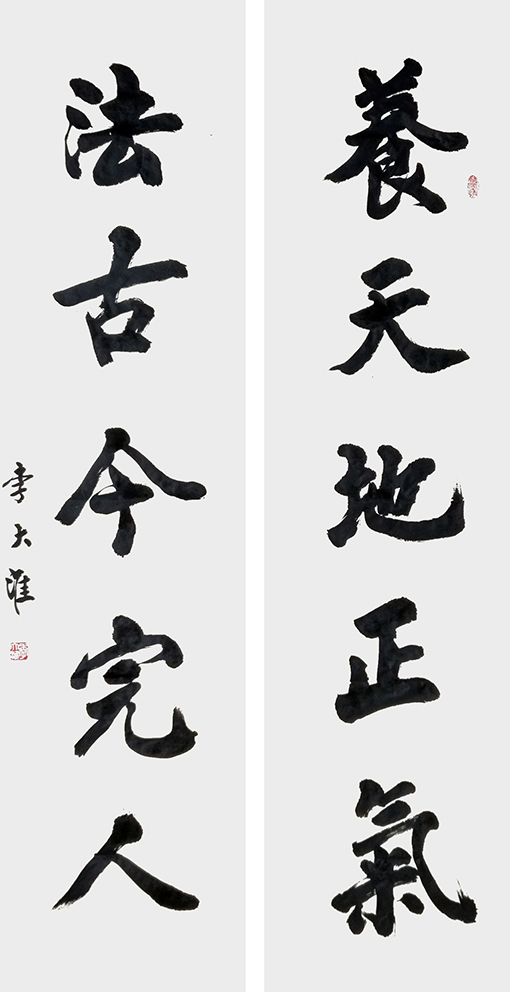 養天地正氣
法古今完人
李大淮